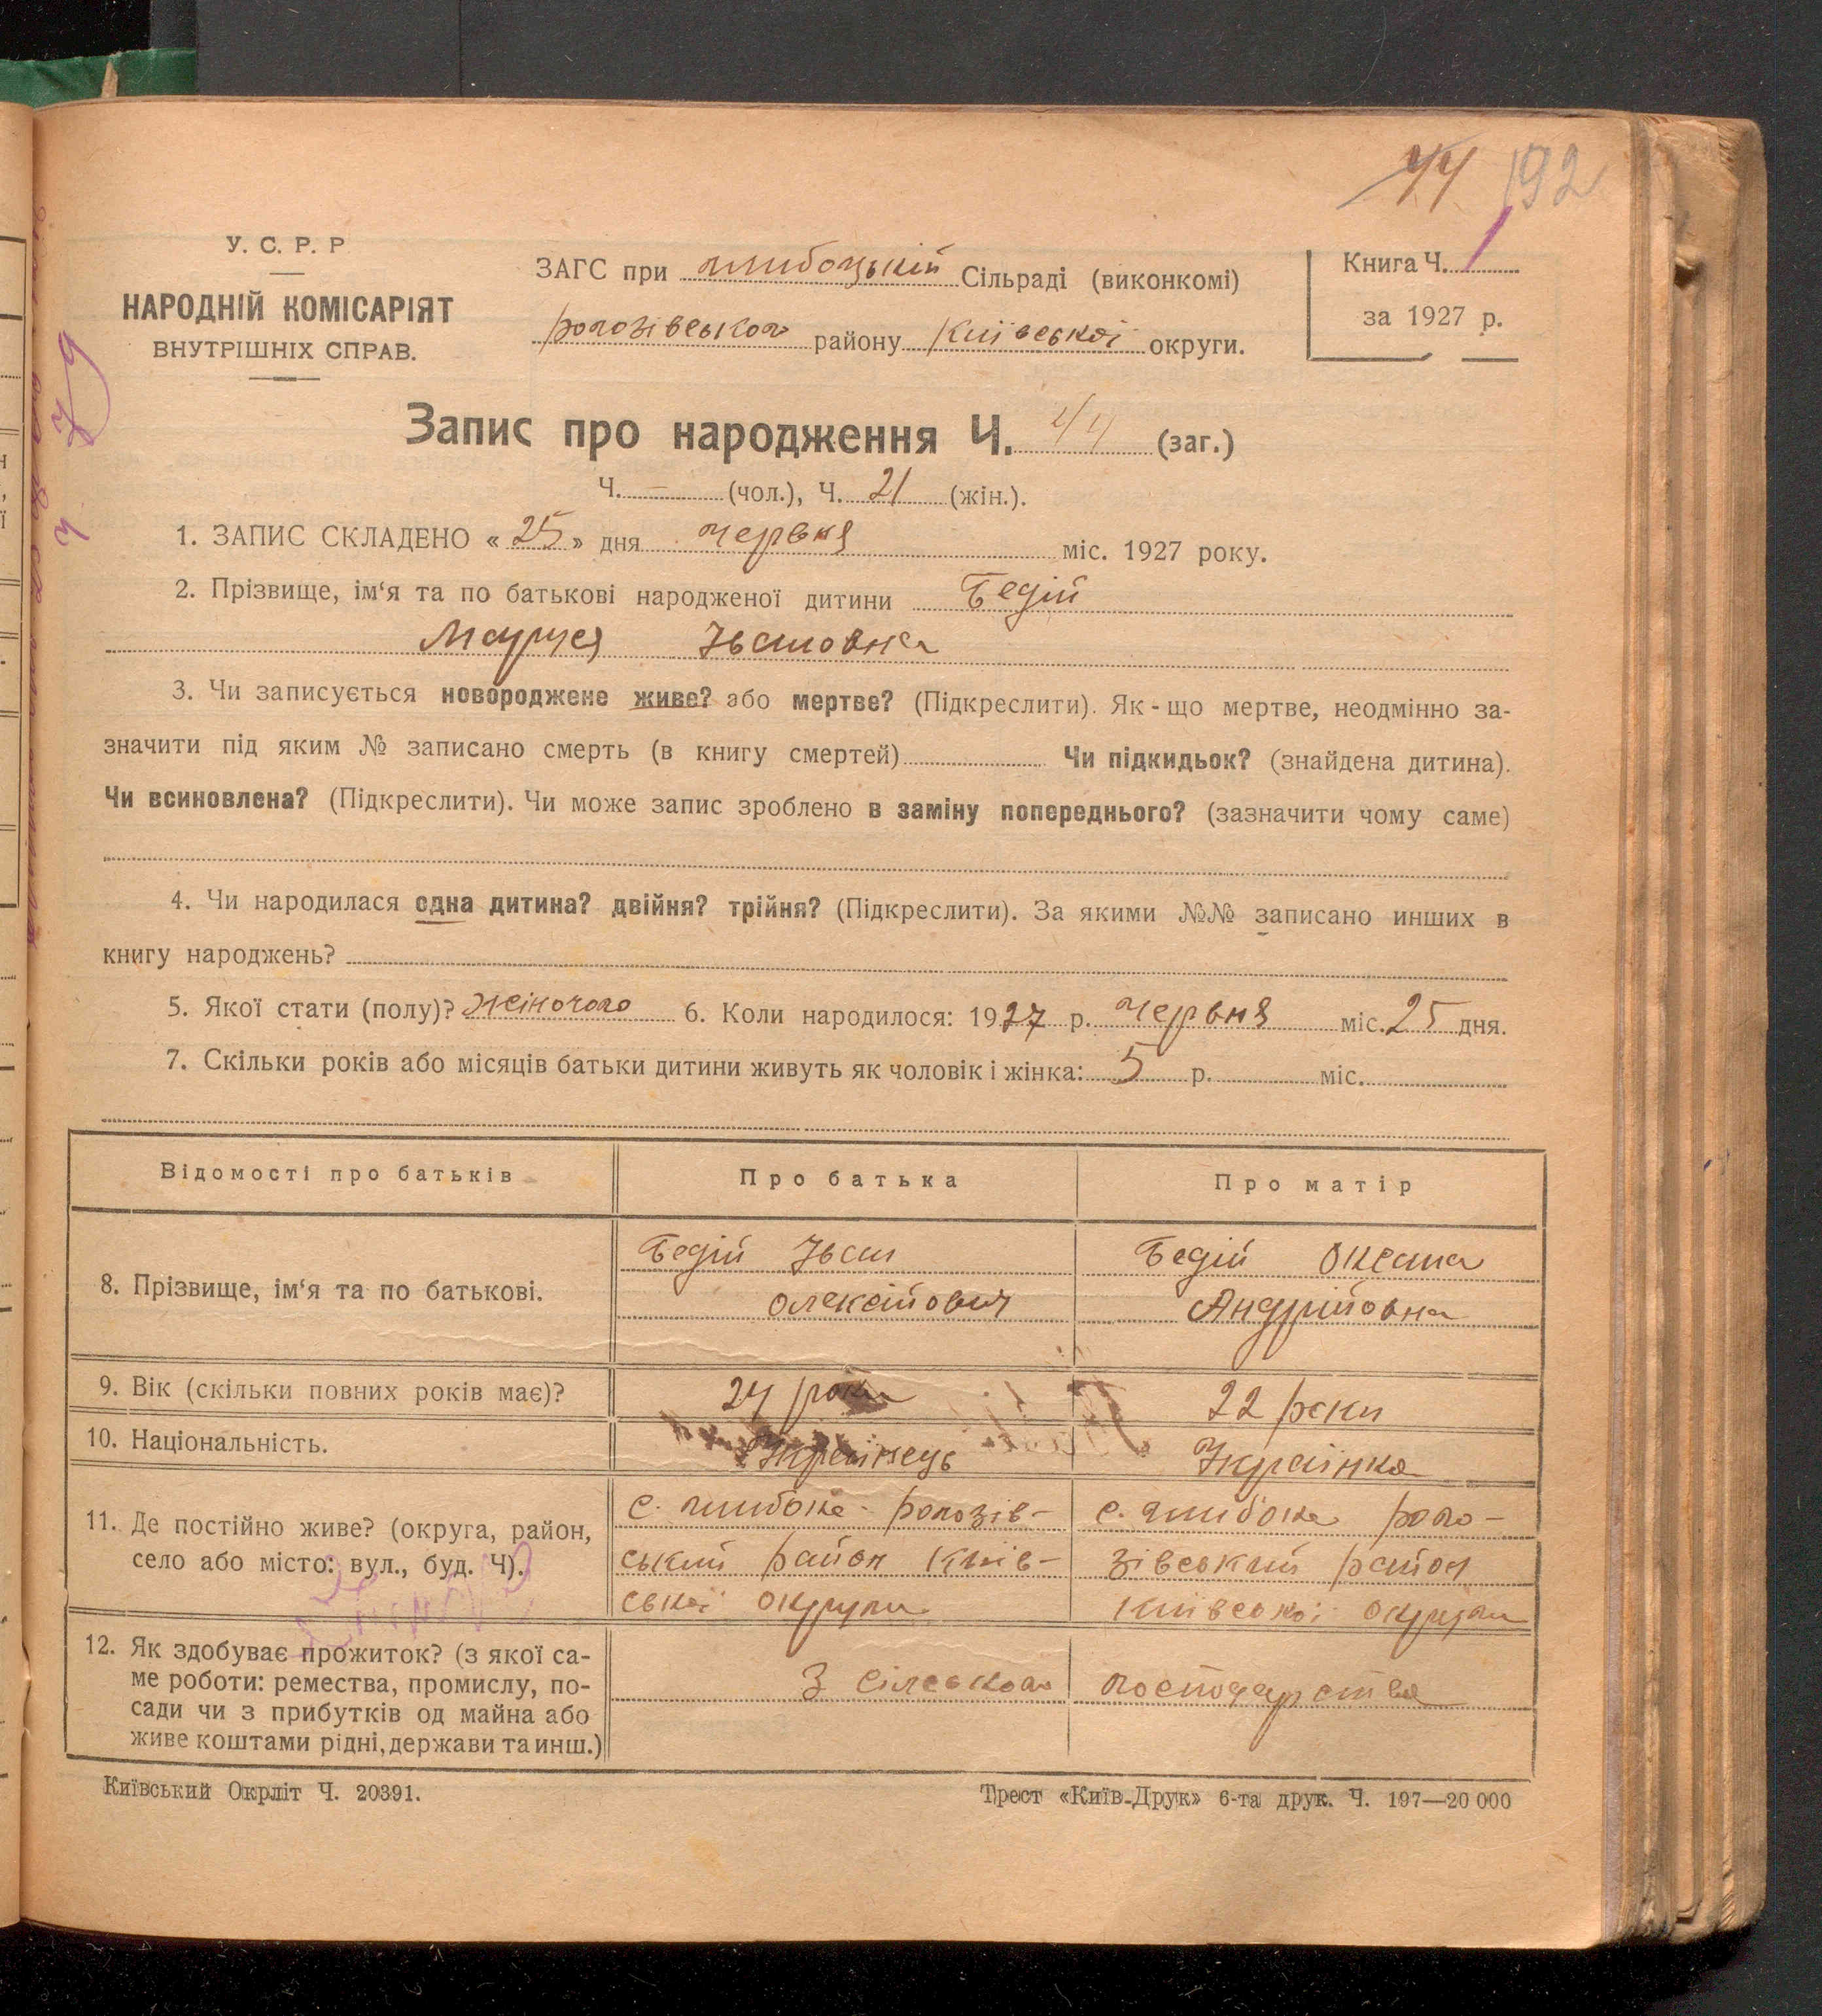 44 192
У. С. Р. Р
НАРОДНІЙ КОМІСАРІЯТ
ВНУТРІШНІХ СПРАВ.
ЗАГС при глибоцькій Сільраді (виконкомі)
рогозівського району Київської округи.
Книга Ч. 1
за 1927 р.
Запис про народження Ч. 44 (заг.)
Ч. — (чол.), Ч. 21 (жін.).
1. ЗАПИС СКЛАДЕНО « 25 » дня червня міс. 1927 року.
2. Прізвище, ім‘я та по батькові народженої дитини Бедій
Маруся Івановна
3. Чи записується новороджене живе? або мертве? (Підкреслити). Як-що мертве, неодмінно за-
значити під яким № записано смерть (в книгу смертей) Чи підкидьок? (знайдена дитина).
Чи всиновлена? (Підкреслити). Чи може запис зроблено в заміну попереднього? (зазначити чому саме)
4. Чи народилася одна дитина? двійня? трійня? (Підкреслити). За якими №№ записано инших в
книгу народжень?
5. Якої стати (полу)? жіночого 6. Коли народилося: 1927 р. червня міс. 25 дня.
7. Скільки років або місяців батьки дитини живуть як чоловік і жінка: 5 р. міс.
Відомості про батьків Про батька Про матір
8. Прізвище, ім‘я та по батькові.
Бедій Іван
олексійович
Бедій Оксана
Андрійовна
9. Вік (скільки повних років має)? 24 роки 22 роки
10. Національність. Українець Українка
11. Де постійно живе? (округа, район,
село або місто: вул., буд. Ч).
с. глибоке рогозів-
ський район Київ-
ської округи
с. глибоке рого-
зівський район
Київської округи
12. Як здобуває прожиток? (з якої са-
ме роботи: ремества, промислу, по-
сади чи з прибутків од майна або
живе коштами рідні, держави та инш.)
З сільського господарства
Київський Окрліт Ч. 20391.
Трест «Київ-Друк» 6-та друк. Ч. 197—20 000